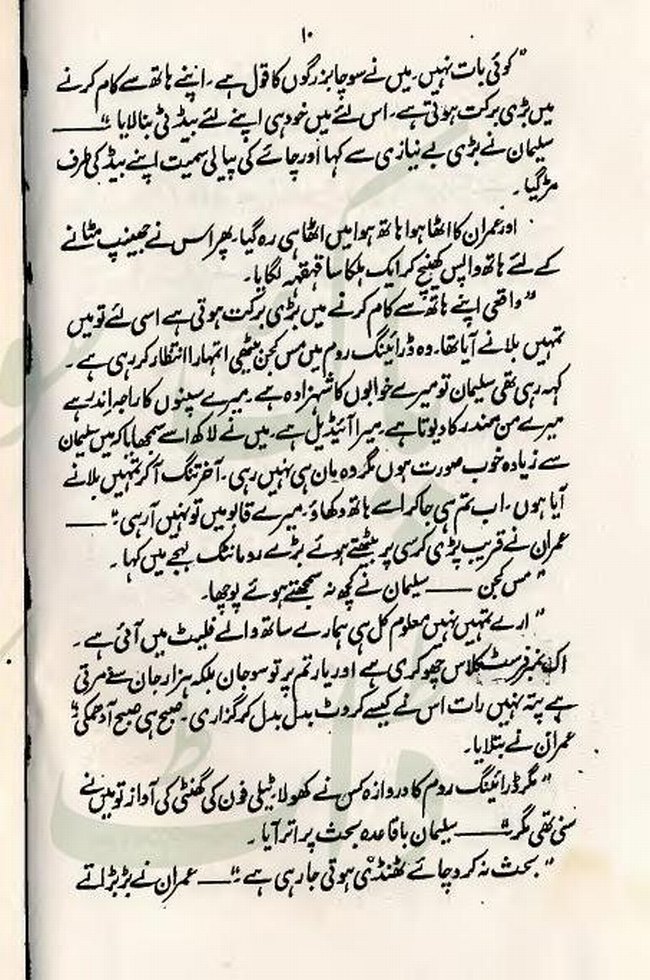 ۱۰
"کوئی بات نہیں۔ میں نے سوچا بزرگوں کا قول ہے۔ اپنے ہاتھ سے کام کرنے
میں بڑی برکت ہوتی ہے۔ اس لئے میں خود ہی اپنے لئے بیڈ ٹی بنا لایا۔" ——
سلیمان نے بڑی بے نیازی سے کہا اور چائے کی پیالی سمیت اپنے بیڈ کی طرف
مڑ گیا۔
اور عمران کا اٹھا ہوا ہاتھ ہوا میں اٹھا ہی رہ گیا۔ پھر اس نے جھینپ مٹانے
کے لئے ہاتھ واپس کھینچ کر ایک ہلکا سا قہقہہ لگایا۔
"واقعی اپنے ہاتھ سے کام کرنے میں بڑی برکت ہوتی ہے اسی لئے تو میں
تمہیں بلانے آیا تھا۔ وہ ڈرائینگ روم میں مس کجن بیٹھی تمہارا انتظار کر رہی ہے۔
کہہ رہی تھی سلیمان تو میرے خوابوں کا شہزادہ ہے۔ میرے سپنوں کا راجہ اِندر ہے
میرے من مندر کا دیوتا ہے۔ میرا آئیڈیل ہے۔ میں نے لاکھ اسے سمجھایا کہ میں سلیمان
سے زیادہ خوب صورت ہوں مگر وہ مان ہی نہیں رہی۔ آخر تنگ آ کر تمہیں بلانے
آیا ہوں۔ اب تم ہی جا کر اسے ہاتھ دکھاؤ۔ میرے قابو میں تو نہیں آ رہی۔" ——
عمران نے قریب پڑی کرسی پر بیٹھتے ہوئے بڑے رومانٹک لہجے میں کہا۔
"مس کجن —— سلیمان نے کچھ نہ سمجھتے ہوئے پوچھا۔
"ارے تمہیں نہیں معلوم کل ہی ہمارے ساتھ والے فلیٹ میں آئی ہے۔
اک نمبر فرسٹ کلاس چھوکری ہے اور یار تم پر تو سو جان بلکہ ہزار جان سے مرتی
ہے پتہ نہیں رات اس نے کیسے کروٹ بدل بدل کر گزاری۔ صبح ہی صبح آ دھمکی"
عمران نے بتلایا۔
"مگر ڈرائینگ روم کا دروازہ کس نے کھولا۔ ٹیلی فون کی گھنٹی کی آواز تو میں نے
سنی تھی مگر" —— سلیمان باقاعدہ بحث پر اتر آیا۔
"بحث نہ کرو چائے ٹھنڈی ہوتی جا رہی ہے۔" —— عمران نے بڑبڑاتے